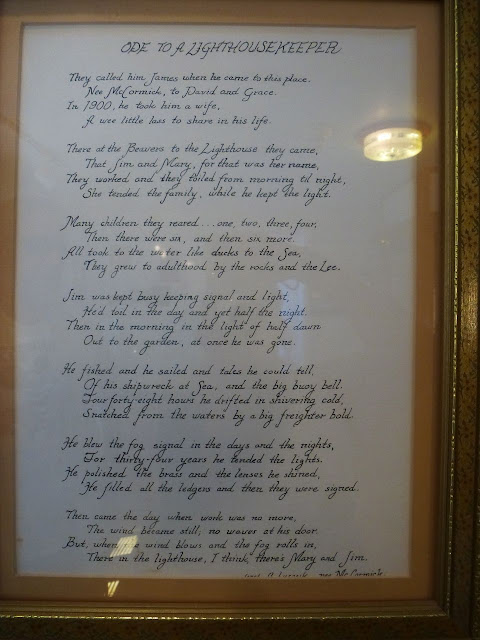 ODE TO A LIGHTHOUSEKEEPER
They called him James when he came to this place.
Nee McCormick, to David and Grace.
In 1900, he took him a wife,
A wee little lass to share in his life.
There at the Beavers to the Lighthouse they came,
That Jim and Mary, for that was her name,
They worked and they toiled from morning til night,
She tended the family, while he kept the light.
Many children they reared....one, two, three, four,
Then there were six, and then six more.
All took to the water like ducks to the Sea,
They grew to adulthood by the rocks and the Lee.
Jim was kept busy keeping signal and light,
He'd toil in the day and yet half the night.
Then in the morning in the light of half dawn
Out to the garden, at once he was gone.
He fished and he sailed and tales he could tell,
Of his shipwreck at Sea, and the big buoy bell.
Four forty-eight hours he drifted in shivering cold,
Snatched from the waters by a big freighter bold.
He blew the fog signal in the days and the nights,
For thirty-four years he tended the lights.
He polished the brass and the lenses he shined,
He filled all the ledgers and then they were signed.
Then came the day when work was no more,
The wind became still, no waver at his door.
But, when the wind blows and the fog rolls in,
There in the lighthouse, I think, there's Mary and Jim.
nee McCormick